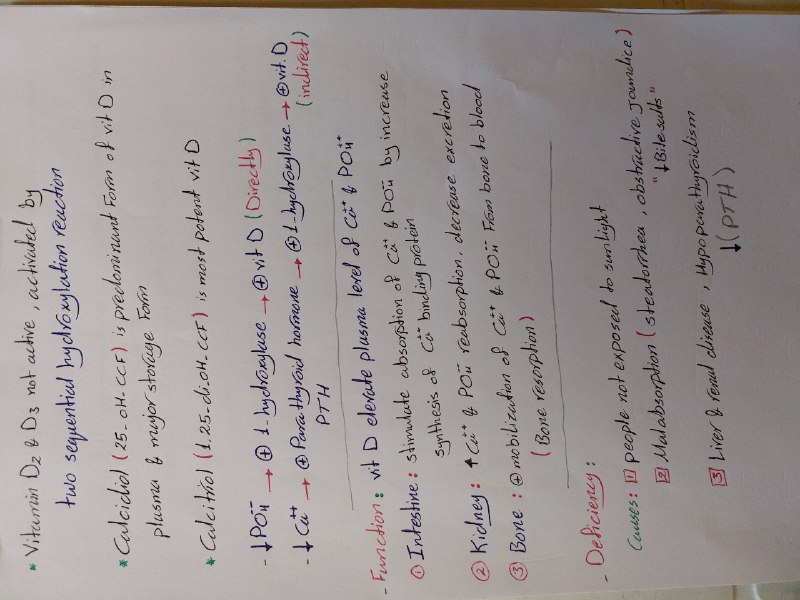 * Vitamin D2 & D3 not active, activated by
two sequential hydroxylation reaction
* Calcidiol (25-OH.CCF) is predominant Form of vit D in
plasma & major storage Form
* Calcitriol (1,25-di.OH.CCF) is most potent vit D
- ↓PO4-- → ⊕ 1-hydroxylase → ⊕ vit D (Directly)
- ↓Ca++ → ⊕ Parathyroid hormone → ⊕ 1-hydroxylase → ⊕ vit. D
PTH (indirect)
- Function: vit D elevate plasma level of Ca++ & PO4--
① Intestine: stimulate absorption of Ca++ & PO4-- by increase
synthesis of Ca++ binding protein
② Kidney: ↑ Ca++ & PO4-- reabsorption, decrease excretion
③ Bone: ⊕ mobilization of Ca++ & PO4-- From bone to blood
(Bone resorption)
- Deficiency:
Causes: 1 people not exposed to sunlight
2 Malabsorption (steatorrhea, obstractive joundice)
"↓Bile salts"
3 Liver & renal disease, Hypoparathyroidism
↓(PTH)